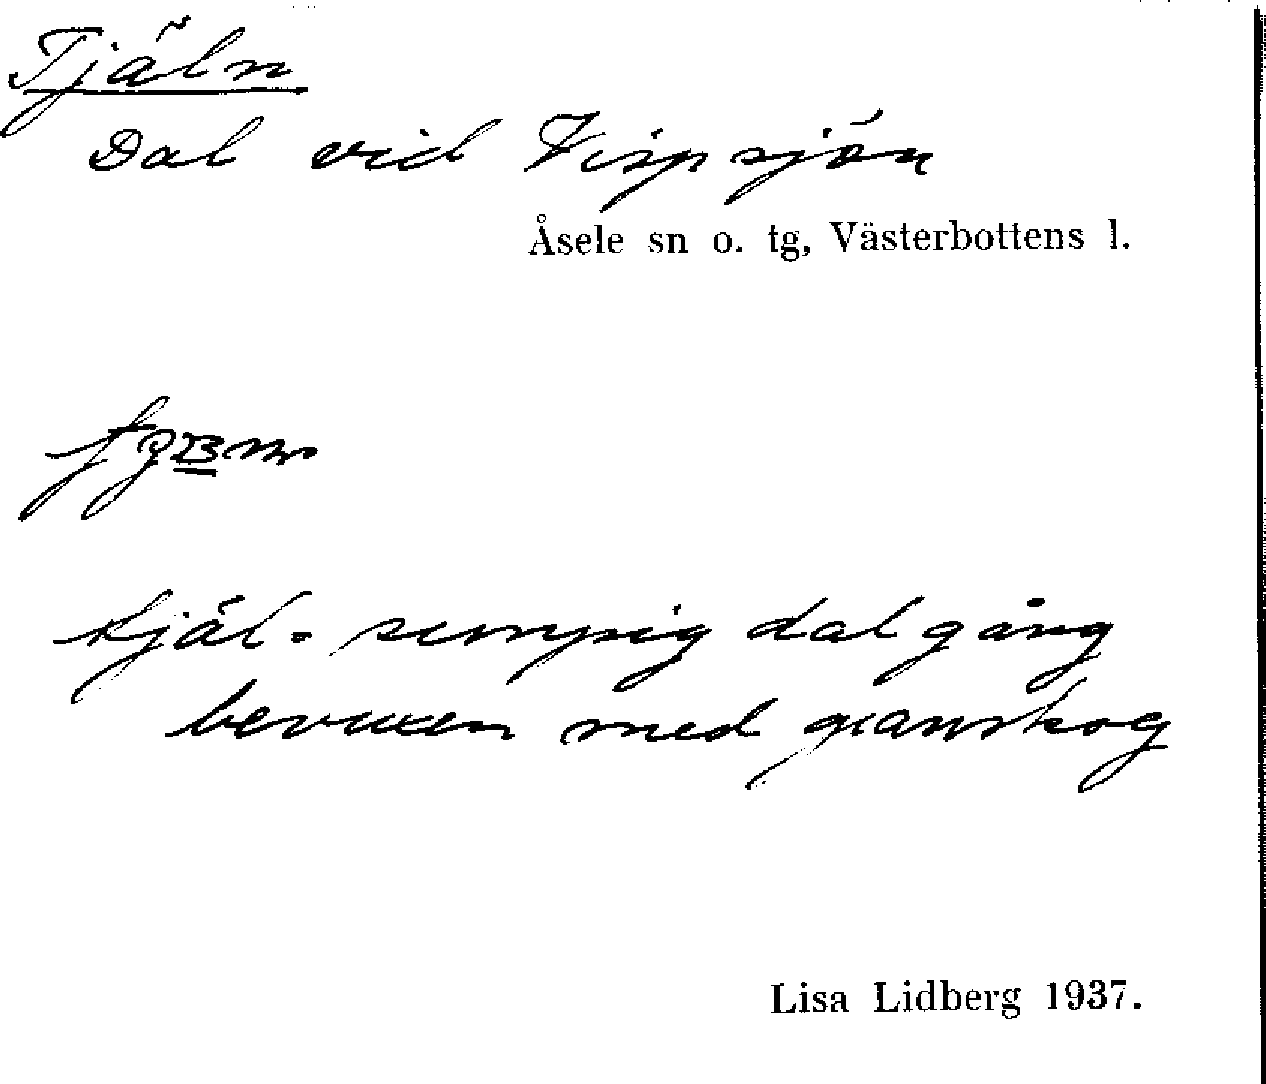 Tjäln
Dal vid Vispsjön
Åsele sn o. tg, Västerbottens l.
tjäl = sumpig dalgång
bevuxen med granskog
Lisa Lidberg 1937.